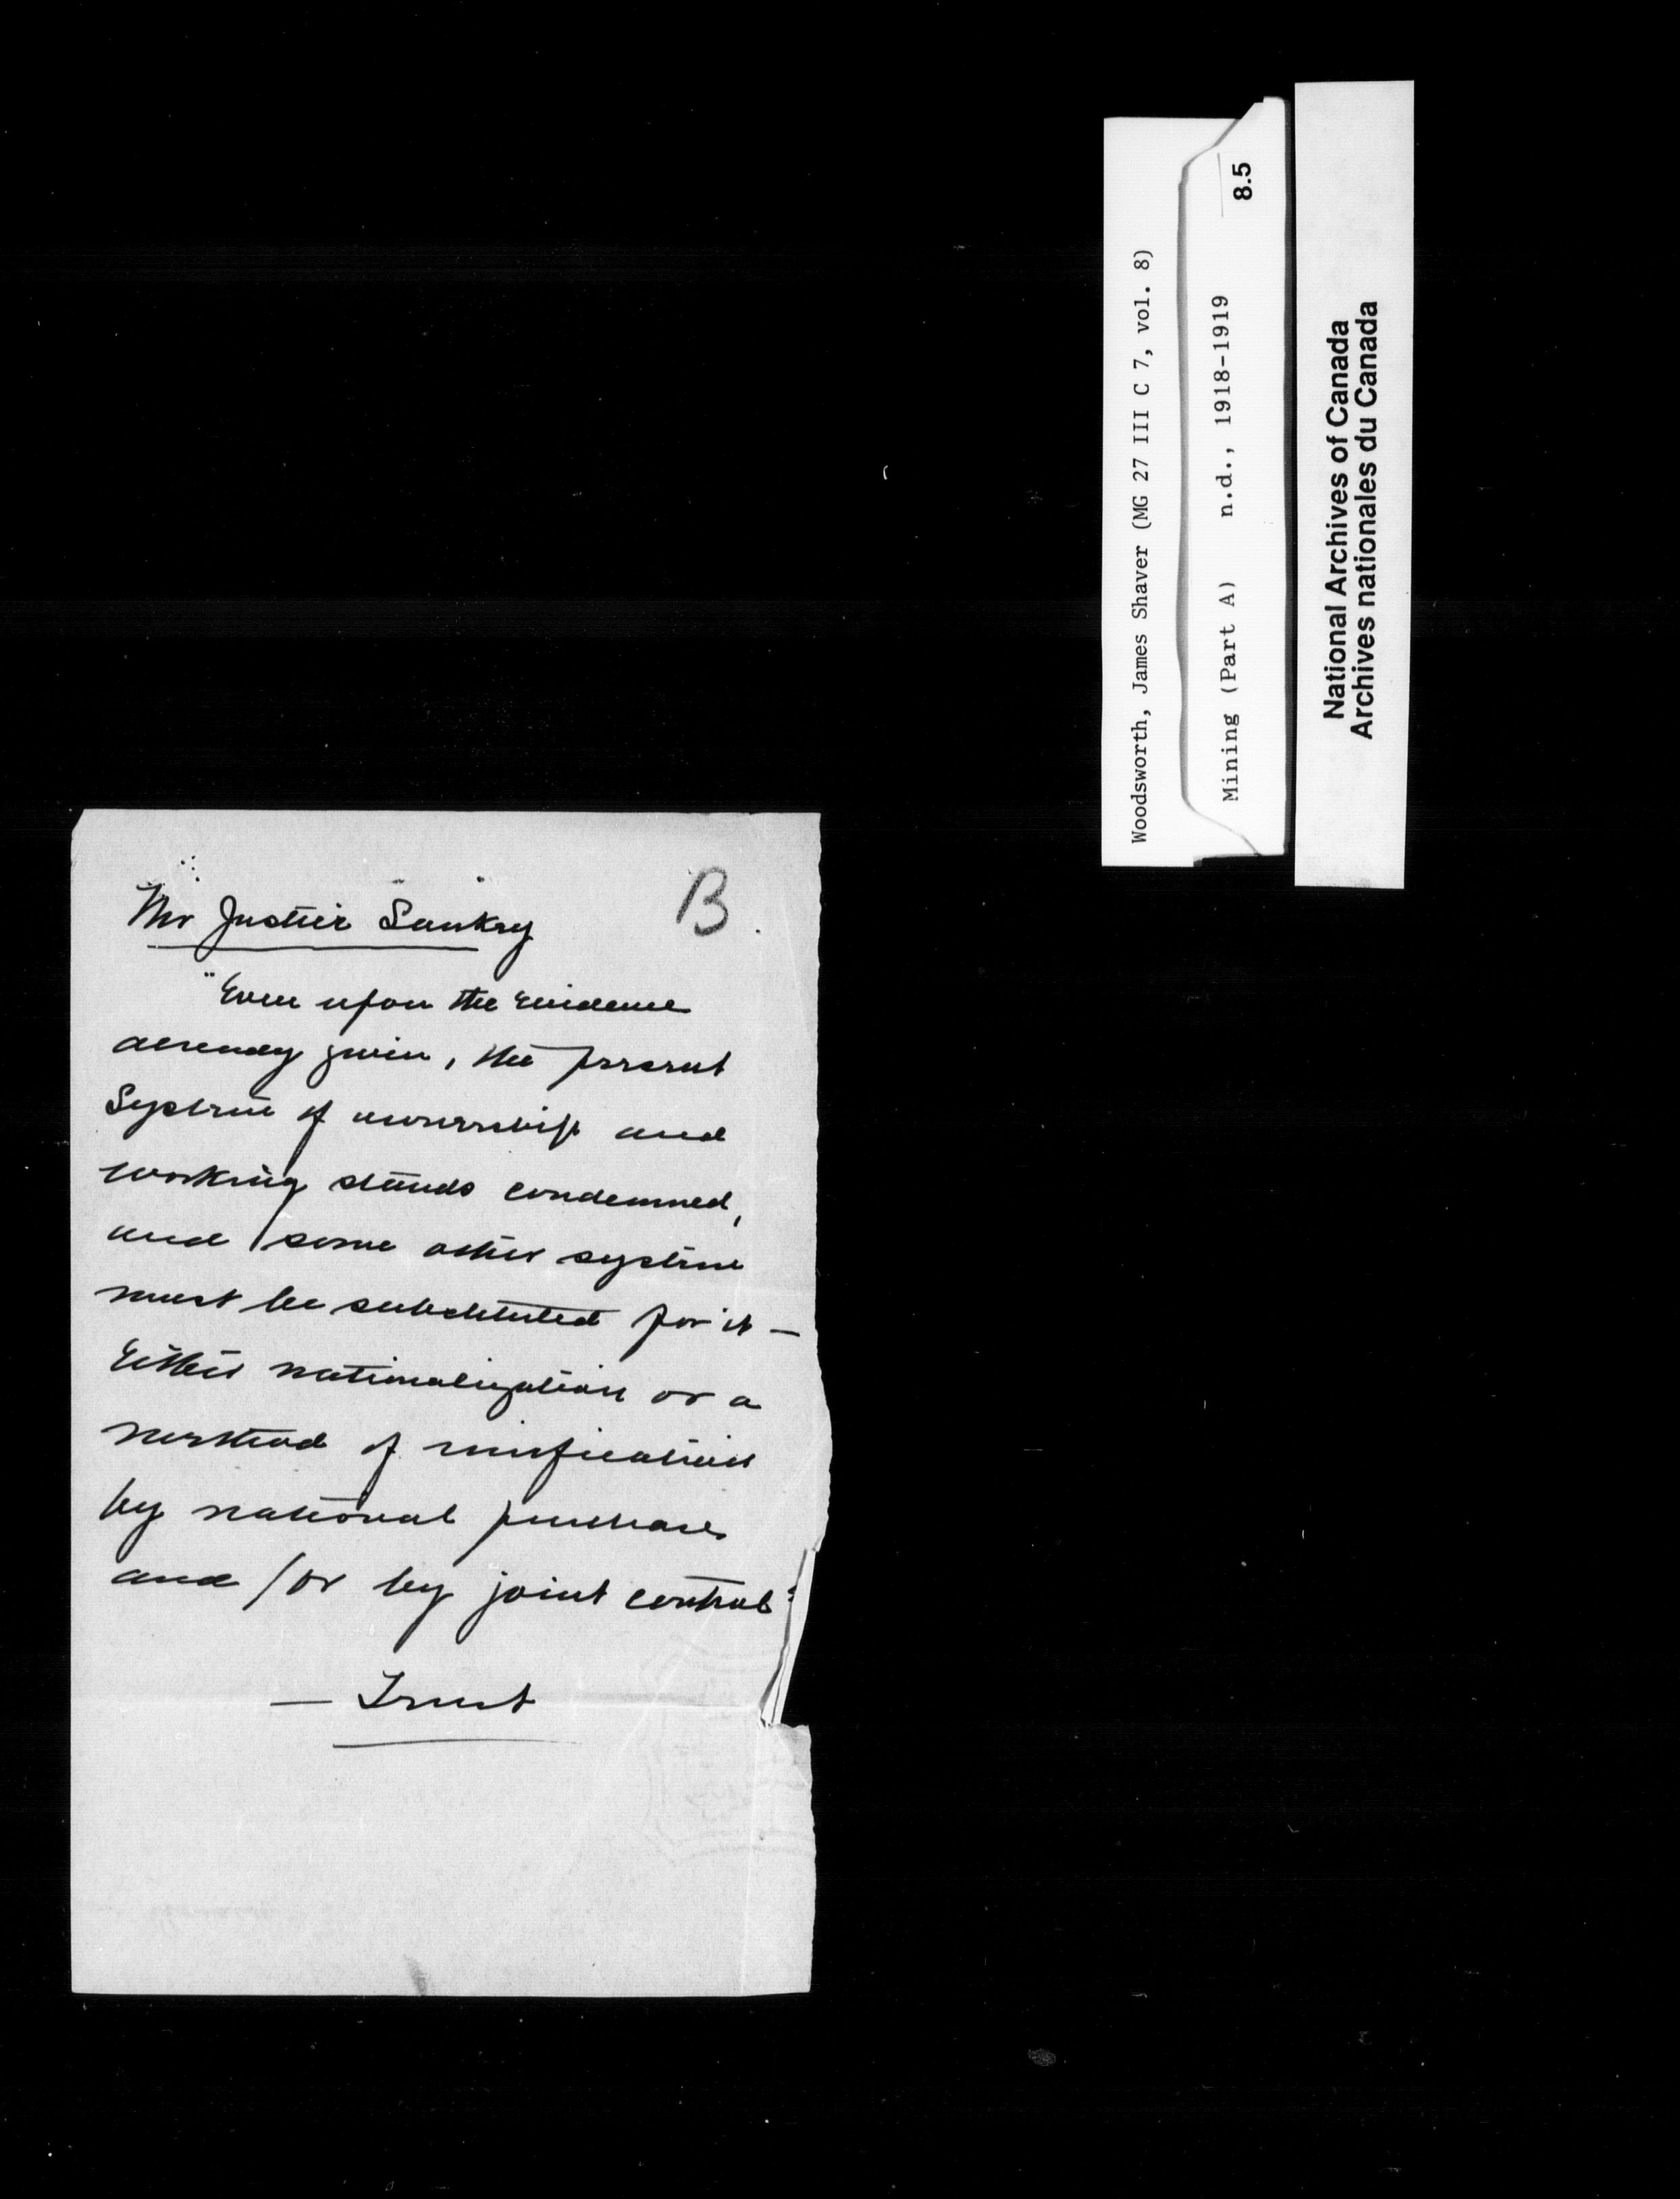 Mr Justice Sankey
B
"Even upon the evidence
already given, the present
System of ownership and
working stands condemned,
and some other system
must be substituted for it —
Either nationalization or a
method of unification
by national purchase
and / or by joint control"
— Trust
Woodsworth, James Shaver (MG 27 III C 7, vol. 8)
Mining (Part A) n.d., 1918-1919
8.5
National Archives of Canada
Archives nationales du Canada